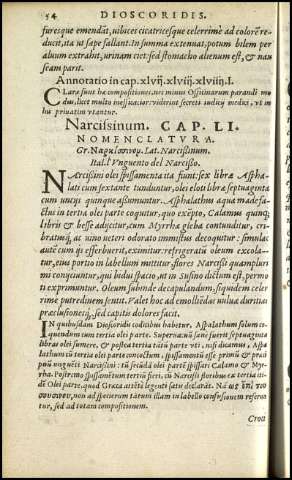 54 DIOSCORIDIS.
furesque emendat, uibices cicatricesque celerrimè ad colorē re-
ducit, ita ut sæpe fallant. In summa extenuat, potum bilem per
aluum extrahit, urinam ciet: sed stomacho alienum est, & nau
seam parit.
Annotatio in cap. xlvij. xlviij. xlviiij. l.
Claræ sunt hæ compositiones, nec minus Officinarum parandi mo
dus, licet multo inefficacior: viderint secreti iudicij medici, vt in
hu priuatim vtantur.
Narcissinum. CAP. LI.
NOMENCLATVRA.
Gr. Ναρκίσσινον. Lat. Narcissinum.
Ital. l'Vnguento del Narciso.
Narcissini olei spissamenta ita fiunt: sex libræ Aspha-
lati cum sextante tunduntur, olei eloti libræ septuaginta
cum uncijs quinque assumuntur. Asphalathus aqua made fa-
ctus in tertia olei parte coquitur, quo exēpto, Calamus quinq;
libris & besse adijcitur, cum Myrrha gleba contunditur, cri-
braturq́;, ac uino ueteri odorato immistus decoquitur: simulac
autē cum ijs efferbuerit, eximitur: refrigeratū oleum excola-
tur, eius portio in labellum mittitur, flores Narcissi quamplur
mi conijciuntur, qui biduo spacio, ut in Susino dictum est, permo
ti exprimuntur. Oleum subinde decapulandum, siquidem cele
rime putredinem sentit. Valet hoc ad emolliēdas uuluæ duritias
præclusionesq́;, sed capitis dolores facit.
In quibusdam Dioscoridi codicibus habetur, Aspalathum solum co-
quendum cum tertia olei parte. Supernacuū sanè fuerit septuaginta
libras olei sumere, & postea tertia tātū parte vti, nisi dicamus, Aspa
lathum cū tertia olei parte concoctum, spissamentū esse primū & præci
puū vnguēti Narcissini: tū secūdā olei partē spissari Calamo & Myr-
rha. Postremo spissamētum tertiū fieri, cū Narcissi floribus ex tertia ist
di Olei parte, quod Græca attētè legenti satis declarāt. Nā ὡς ἐπὶ του
σουσίνου, non ad specierum tātum illam in labello confusionem refera
tur, sed ad totam compositionem.
Croci